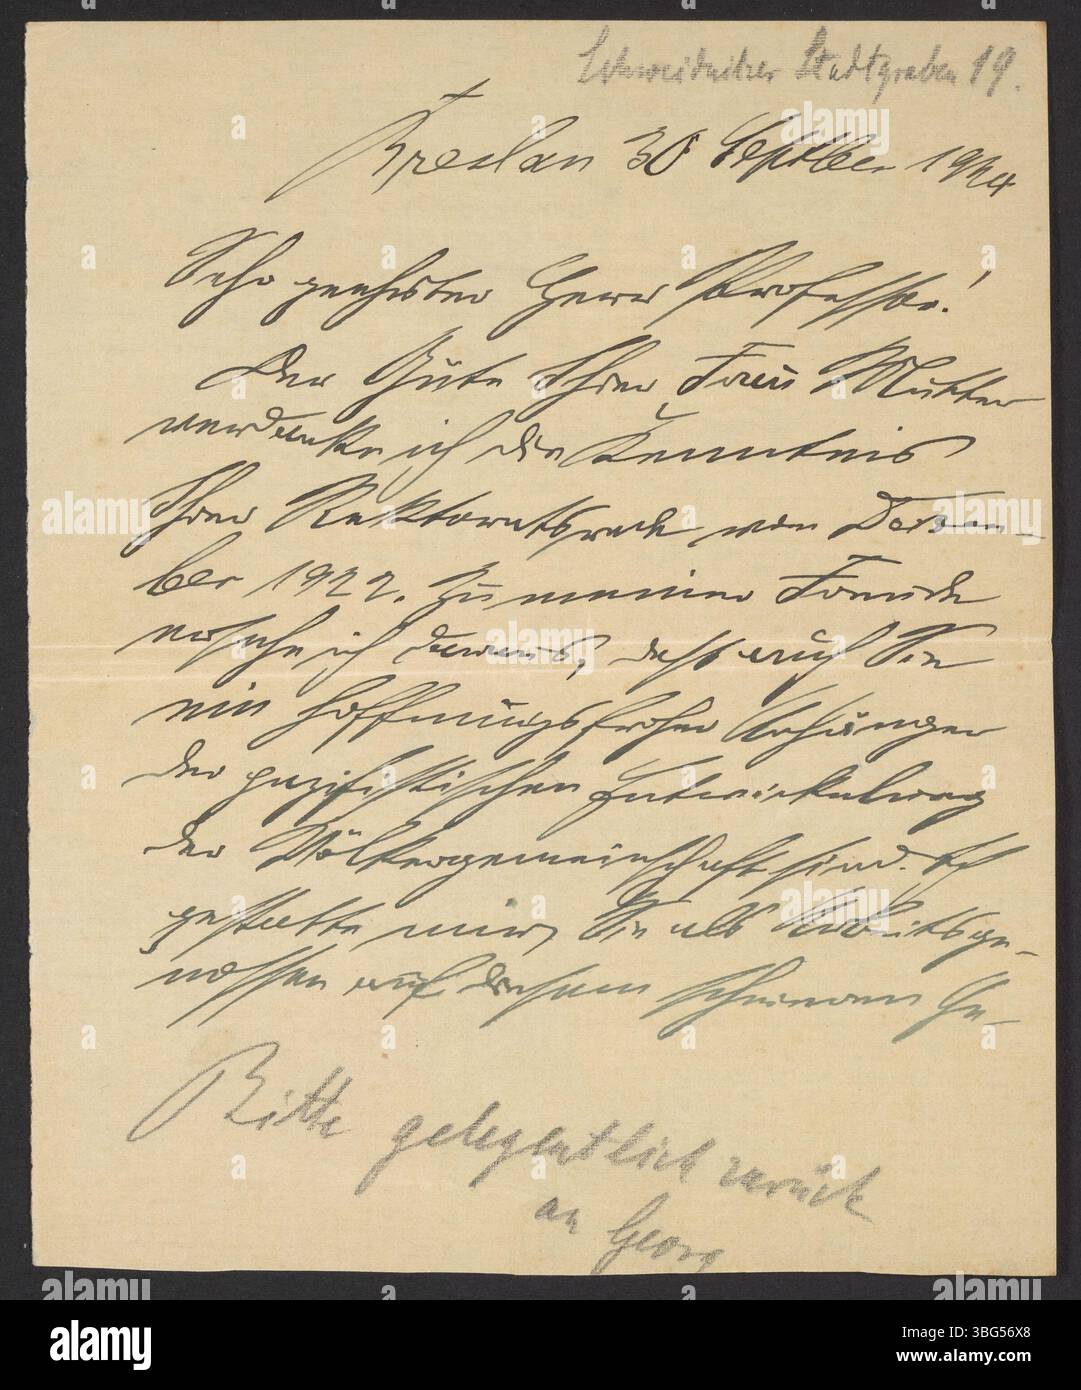 Schweidnitzer Stadtgraben 19.
Breslau 30 September 1924
Sehr geehrter Herr Professor!
Der Güte Ihrer Frau Mutter
verdanke ich die Kenntnis
Ihrer Rektoratsrede vom Dezem-
ber 1922. Zu meiner Freude
ersehe ich daraus, dass auch Sie
ein hoffnungsfroher Anhänger
der pazifistischen Entwickelung
der Völkergemeinschaft sind. Ich
gestatte mir, Sie als Arbeitsge-
nossen auf diesem schweren Ge-
Bitte gelegentlich zurück
an Georg
alamy
Image ID: 3BG56X8
www.alamy.com